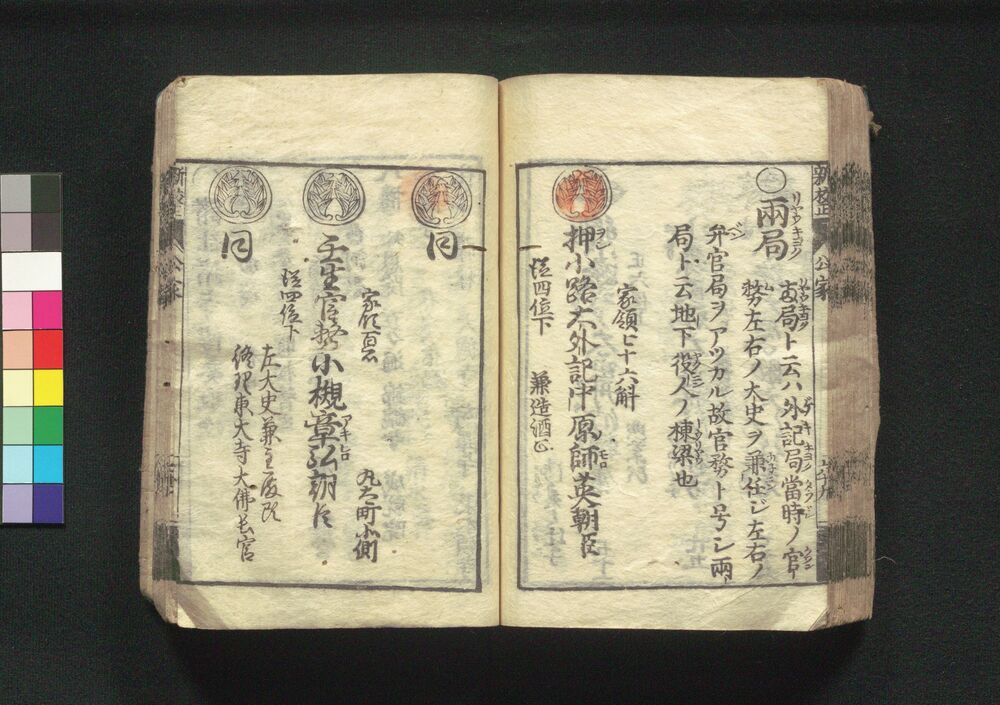 兩局
両局ト云ハ外記局當時ノ官
務左右ノ大史ヲ兼任シ左右ノ
弁官局ヲアツカル故官務ト号シ兩
局ト云地下役人ノ棟梁也
家領七十六斛
押小路大外記中原師英朝臣
従四位下 兼造酒正
同
家領百石 九太町北側
壬生官務小槻章弘朝臣
従四位下
左大史兼主殿頭
修理東大寺大佛長官
同
新校正
公家
新校正
公家